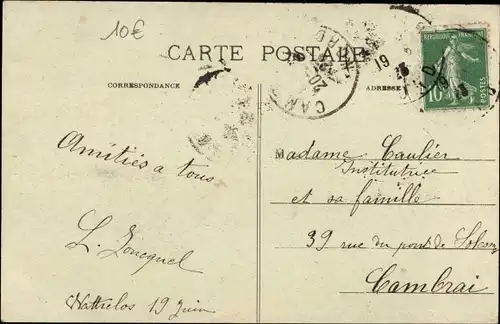 10€
CARTE POSTALE
CORRESPONDANCE
ADRESSE
REPUBLIQUE FRANÇAISE
10
POSTES
CAM
NORD
20
19
Amitiés a tous
L.
Wattrelos 19 Juin
Madame Caulier
Institutrice
et sa famille
39 rue du pont de
Cambrai